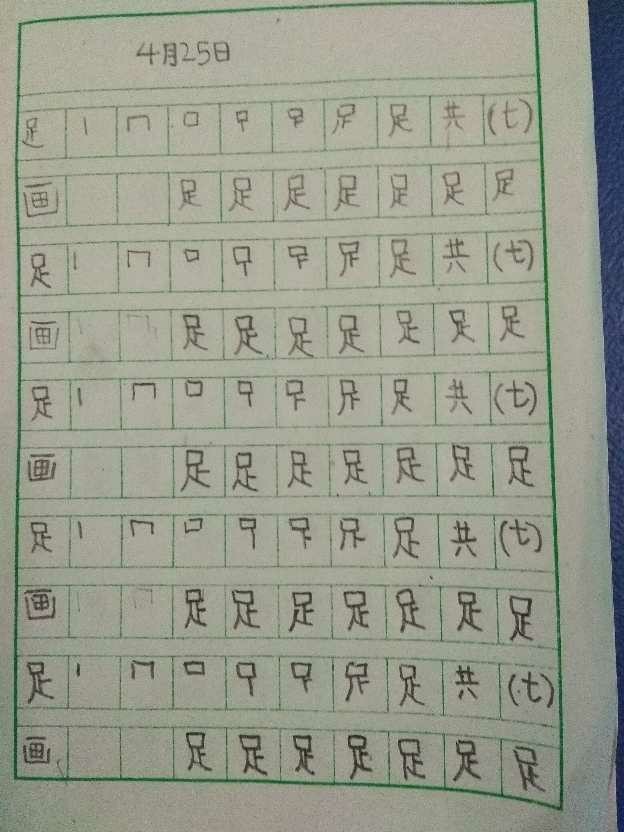 4月25日
足 丨 冂 口 足 共 (七)
画 足 足 足 足 足 足 足
足 丨 冂 口 足 共 (七)
画 足 足 足 足 足 足 足
足 丨 冂 口 足 共 (七)
画 足 足 足 足 足 足 足
足 丨 冂 口 足 共 (七)
画 足 足 足 足 足 足 足
足 丨 冂 口 足 共 (七)
画 足 足 足 足 足 足 足